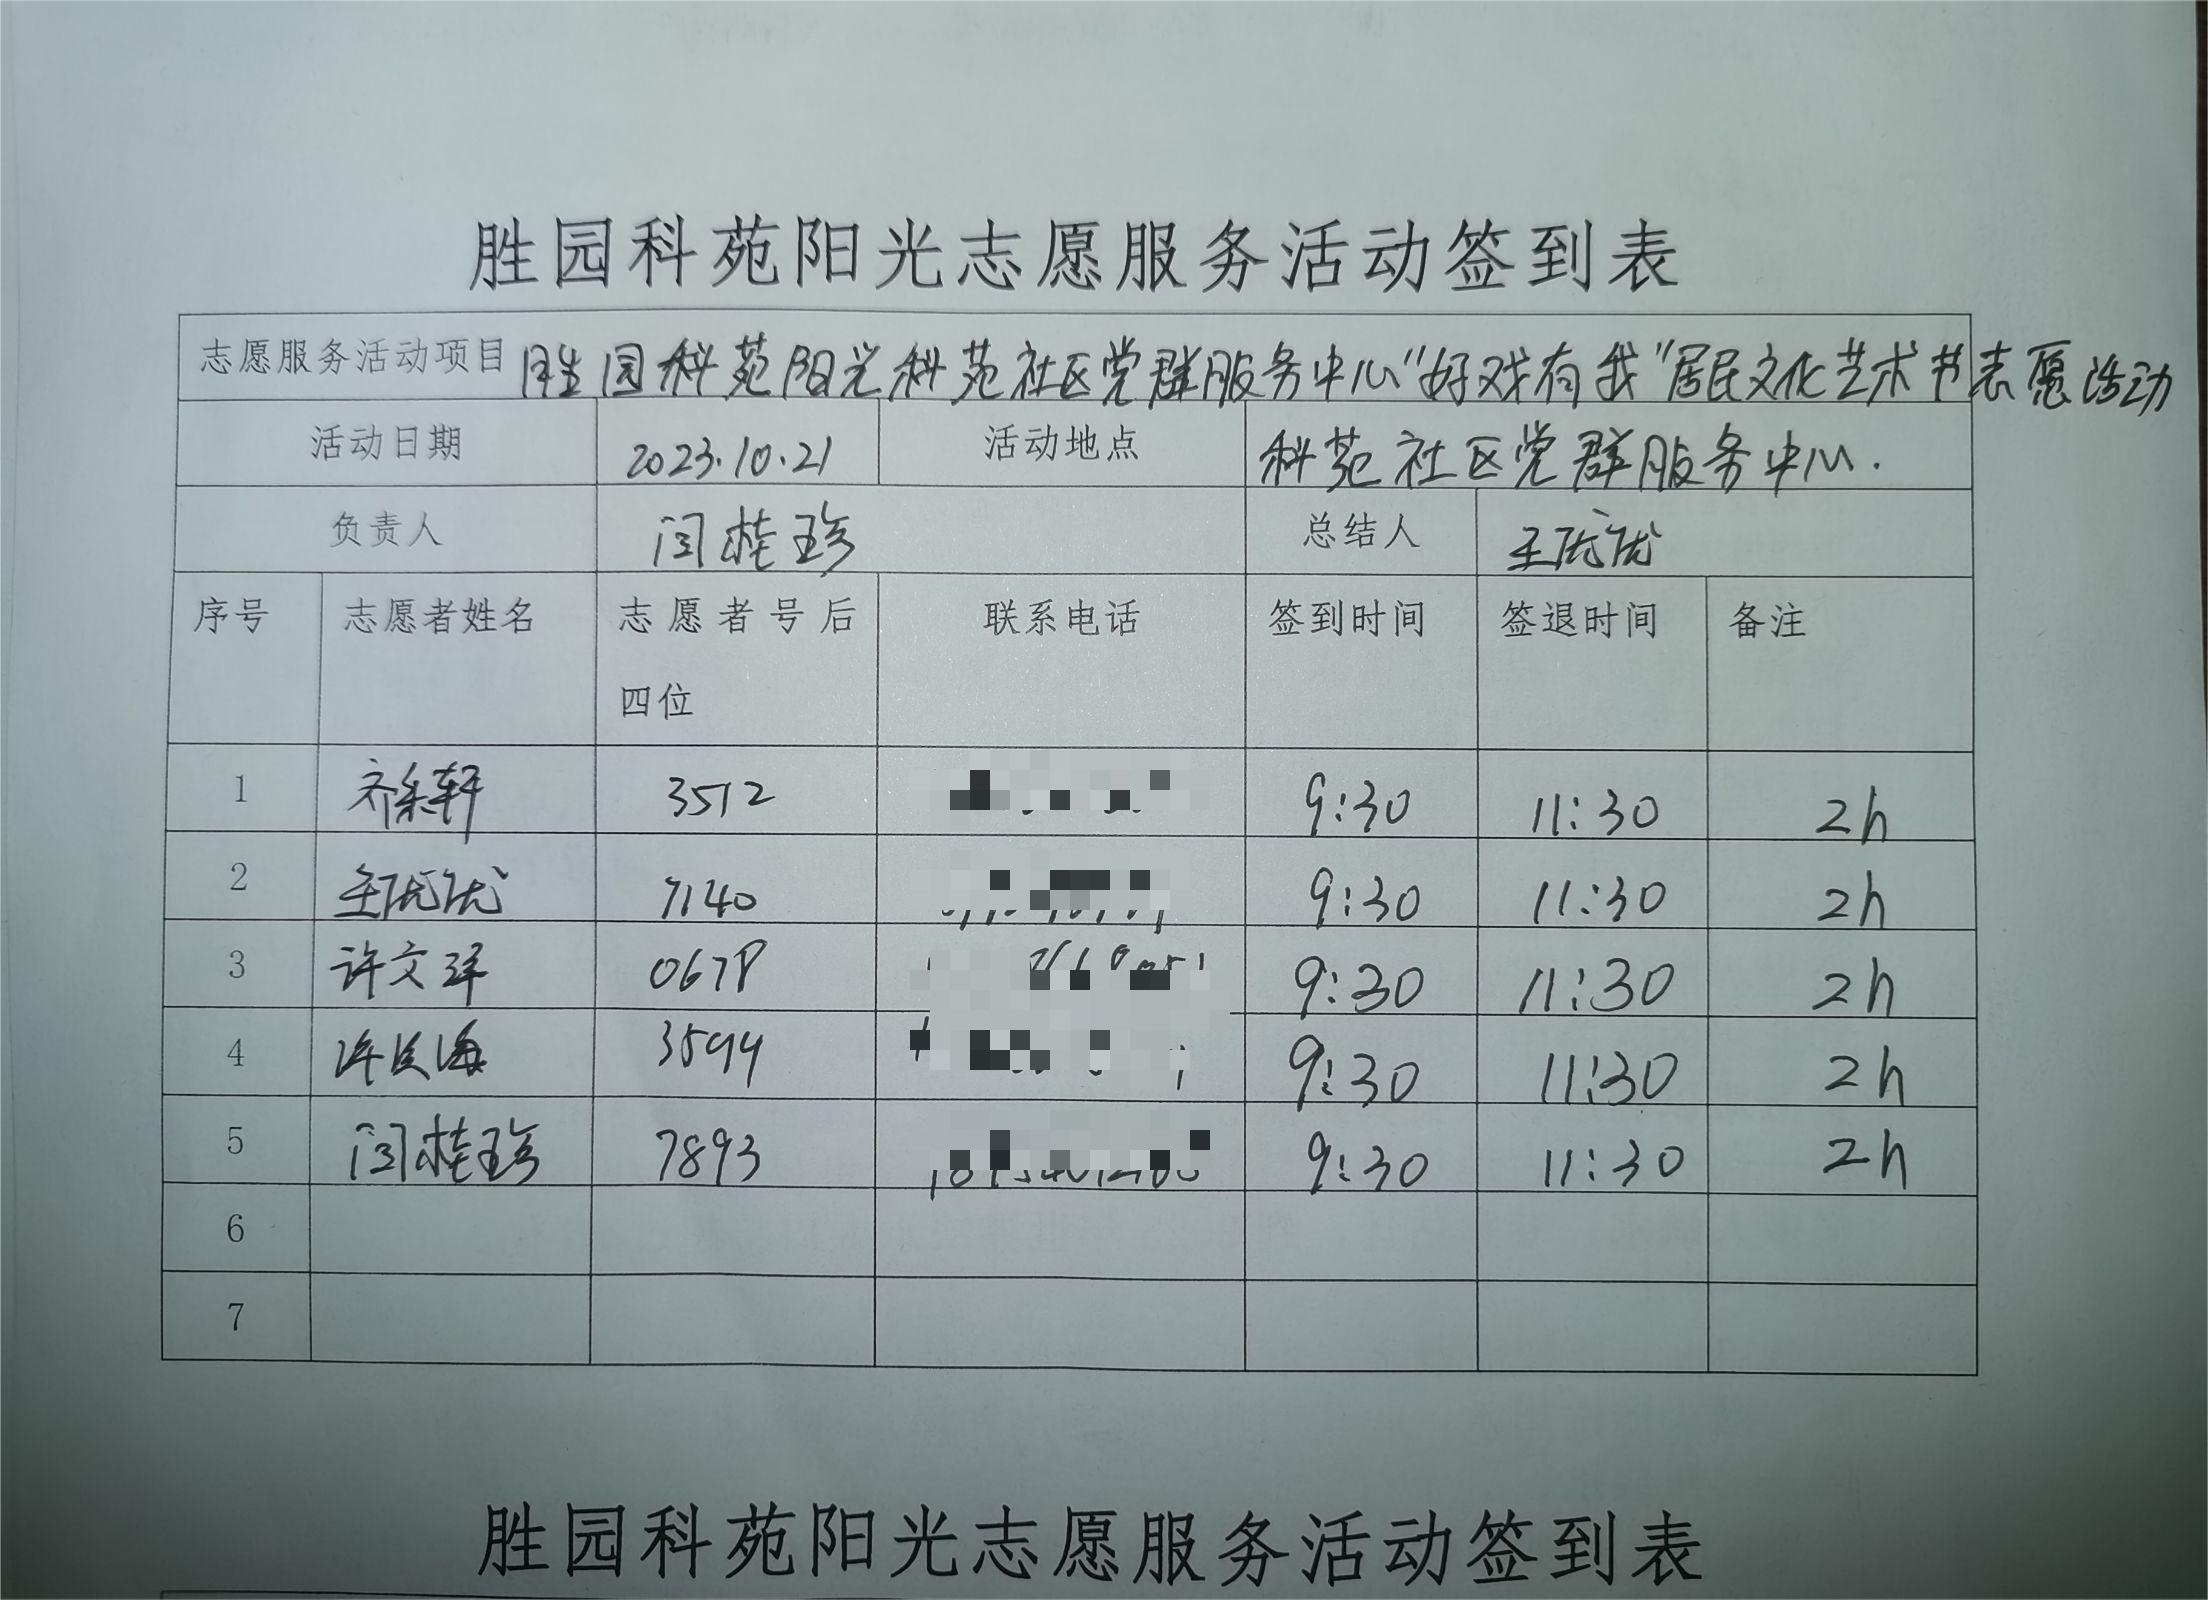 胜园科苑阳光志愿服务活动签到表
志愿服务活动项目 胜园科苑阳光科苑社区党群服务中心“好戏有我”居民文化艺术节志愿活动
活动日期 2023.10.21 活动地点 科苑社区党群服务中心.
负责人 闫桂珍 总结人 王优优
序号 志愿者姓名 志愿者号后四位 联系电话 签到时间 签退时间 备注
1 齐 轩 3512 9:30 11:30 2h
2 王优优 7140 9:30 11:30 2h
3 许文 9:30 11:30 2h
4 许 海 3594 9:30 11:30 2h
5 闫桂珍 7893 9:30 11:30 2h
6
7
胜园科苑阳光志愿服务活动签到表